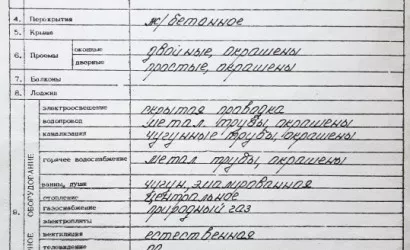 4. Перекрытия ж/бетонное
5. Крыша
6. Проемы оконные двойные, окрашены
дверные простые, окрашены
7. Балконы
8. Лоджии
электроосвещение скрытая проводка
водопровод метал. трубы, окрашены
канализация чугунные трубы, окрашены
горячее водоснабжение метал трубы, окрашены
ванны, души чугун, эмалированная
отопление центральное
газоснабжение природный газ
электроплиты
вентиляция естественная
телевидение
9.
ОБОРУДОВАНИЕ